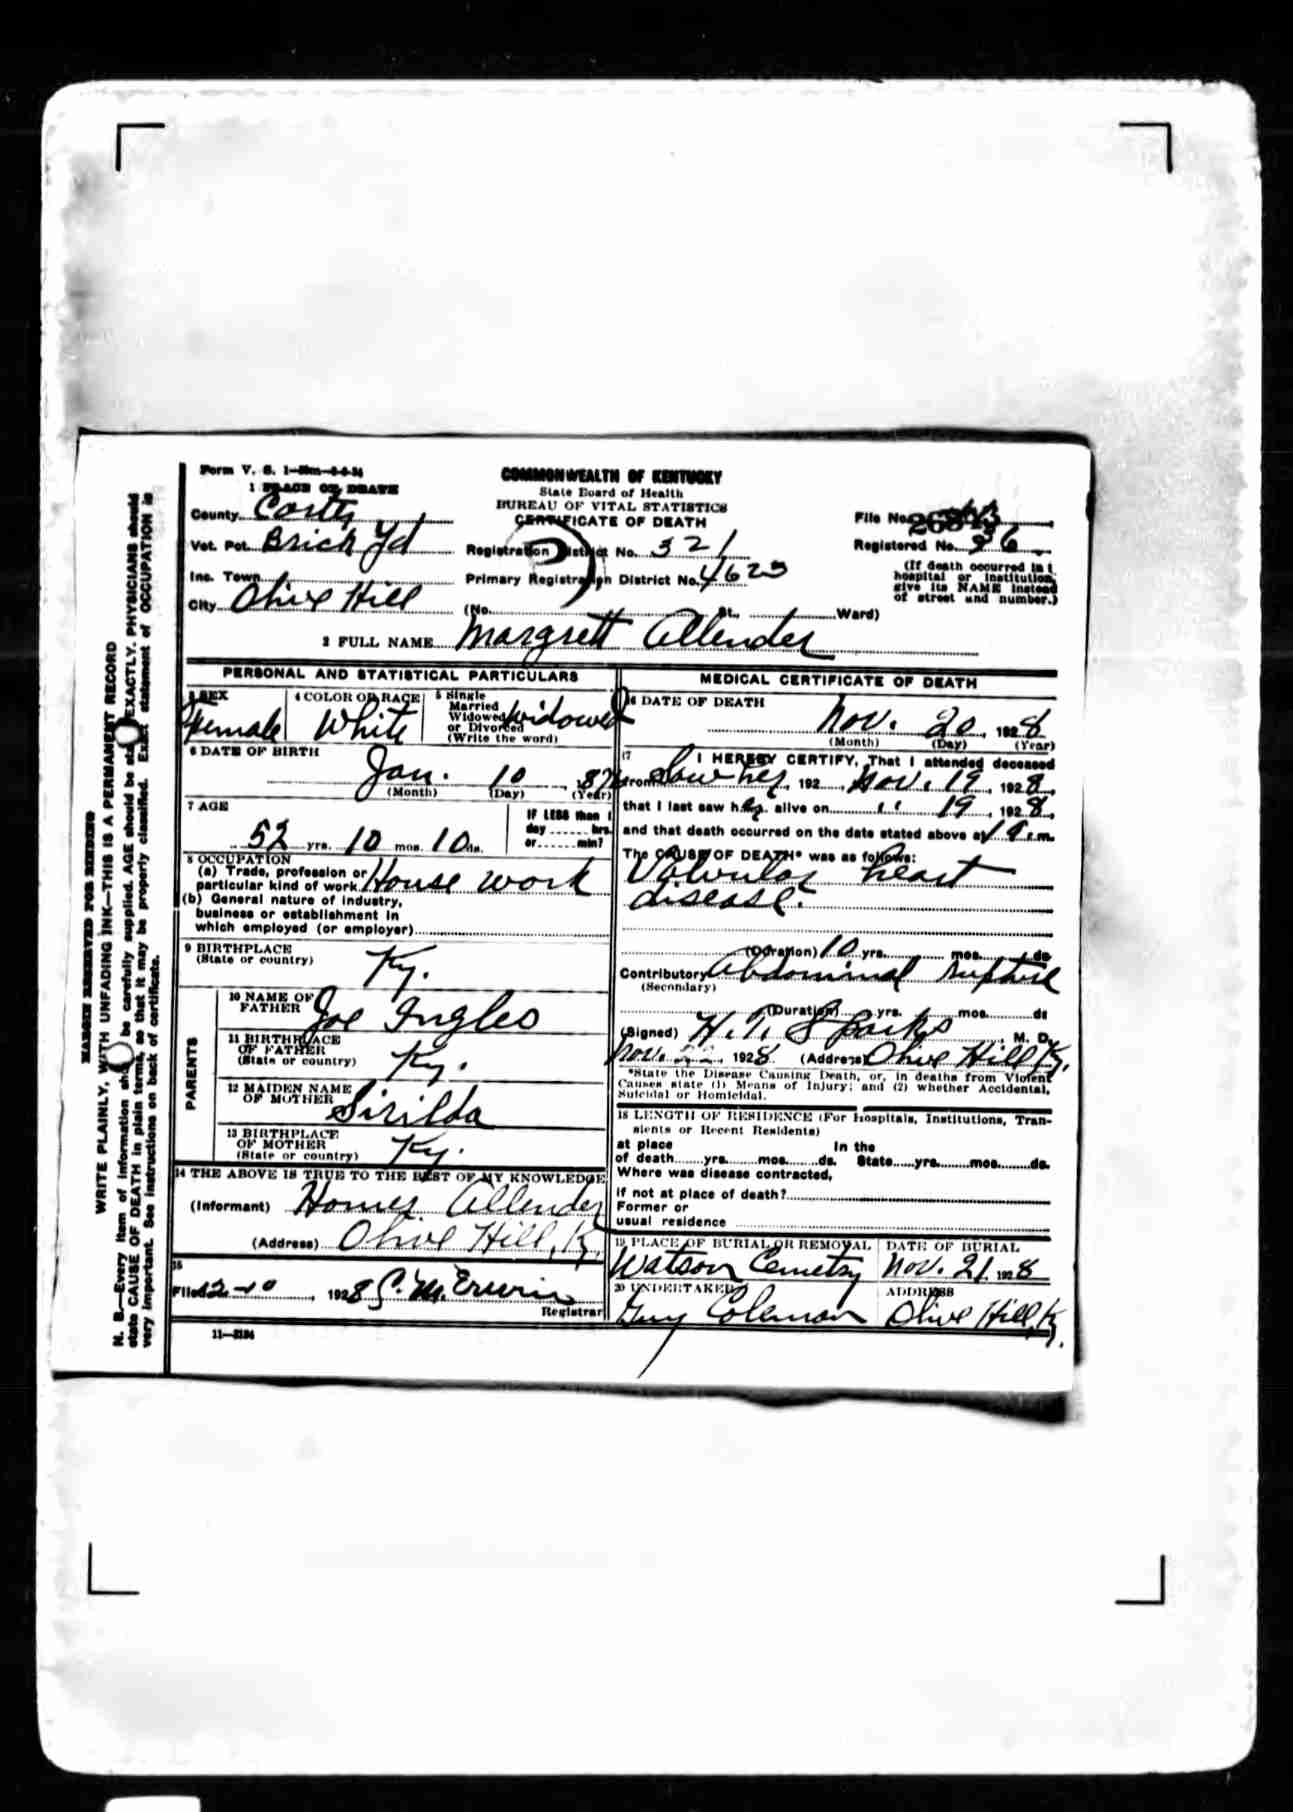 Form V. S. 1
COMMONWEALTH OF KENTUCKY
State Board of Health
BUREAU OF VITAL STATISTICS
CERTIFICATE OF DEATH
1 PLACE OF DEATH
County Carter
Vot. Pct. Brick Yd
Inc. Town
City Olive Hill (No. St., Ward)
Registration District No. 321
Primary Registration District No. 4625
File No.
Registered No. 36
(If death occurred in a
hospital or institution,
give its NAME instead
of street and number.)
2 FULL NAME Margrett Allender
PERSONAL AND STATISTICAL PARTICULARS
3 SEX
Female
4 COLOR OR RACE
White
5 Single
Married
Widowed
or Divorced
(Write the word)
Widowed
6 DATE OF BIRTH
Jan. 10
(Month) (Day) (Year)
7 AGE
52 yrs. 10 mos. 10 ds.
IF LESS than 1
day hrs.
or min?
8 OCCUPATION
(a) Trade, profession or
particular kind of work House work
(b) General nature of industry,
business or establishment in
which employed (or employer)
9 BIRTHPLACE
(State or country)
Ky.
PARENTS
10 NAME OF
FATHER
Joe Ingles
11 BIRTHPLACE
OF FATHER
(State or country)
Ky.
12 MAIDEN NAME
OF MOTHER
Sirilda
13 BIRTHPLACE
OF MOTHER
(State or country)
Ky.
14 THE ABOVE IS TRUE TO THE BEST OF MY KNOWLEDGE
(Informant) Homer Allender
(Address) Olive Hill, Ky.
15
Filed 12-10, 1928 C. M. Erwin
Registrar
11—3184
MEDICAL CERTIFICATE OF DEATH
16 DATE OF DEATH
Nov. 20, 1928
(Month) (Day) (Year)
17 I HEREBY CERTIFY, That I attended deceased
from Saw her, 192 , Nov. 19, 1928,
that I last saw her alive on " 19, 1928,
and that death occurred on the date stated above at m.
The CAUSE OF DEATH* was as follows:
Valvular heart
disease.
(Duration) 10 yrs. mos. ds
Contributory Abdominal rupture
(Secondary)
(Duration) yrs. mos. ds
(Signed) H. T. Sparks M. D.
Nov. 22, 1928 (Address) Olive Hill Ky.
*State the Disease Causing Death, or, in deaths from Violent
Causes state (1) Means of Injury; and (2) whether Accidental,
Suicidal or Homicidal.
18 LENGTH OF RESIDENCE (For Hospitals, Institutions, Tran-
sients or Recent Residents)
at place In the
of death yrs. mos. ds. State yrs. mos. ds.
Where was disease contracted,
if not at place of death?
Former or
usual residence
19 PLACE OF BURIAL OR REMOVAL
Watson Cemetry
DATE OF BURIAL
Nov. 21. 1928
20 UNDERTAKER
Guy Coleman
ADDRESS
Olive Hill, Ky.
MARGIN RESERVED FOR BINDING
WRITE PLAINLY, WITH UNFADING INK—THIS IS A PERMANENT RECORD
N. B.—Every item of information should be carefully supplied. AGE should be stated EXACTLY. PHYSICIANS should
state CAUSE OF DEATH in plain terms, so that it may be properly classified. Exact statement of OCCUPATION is
very important. See instructions on back of certificate.